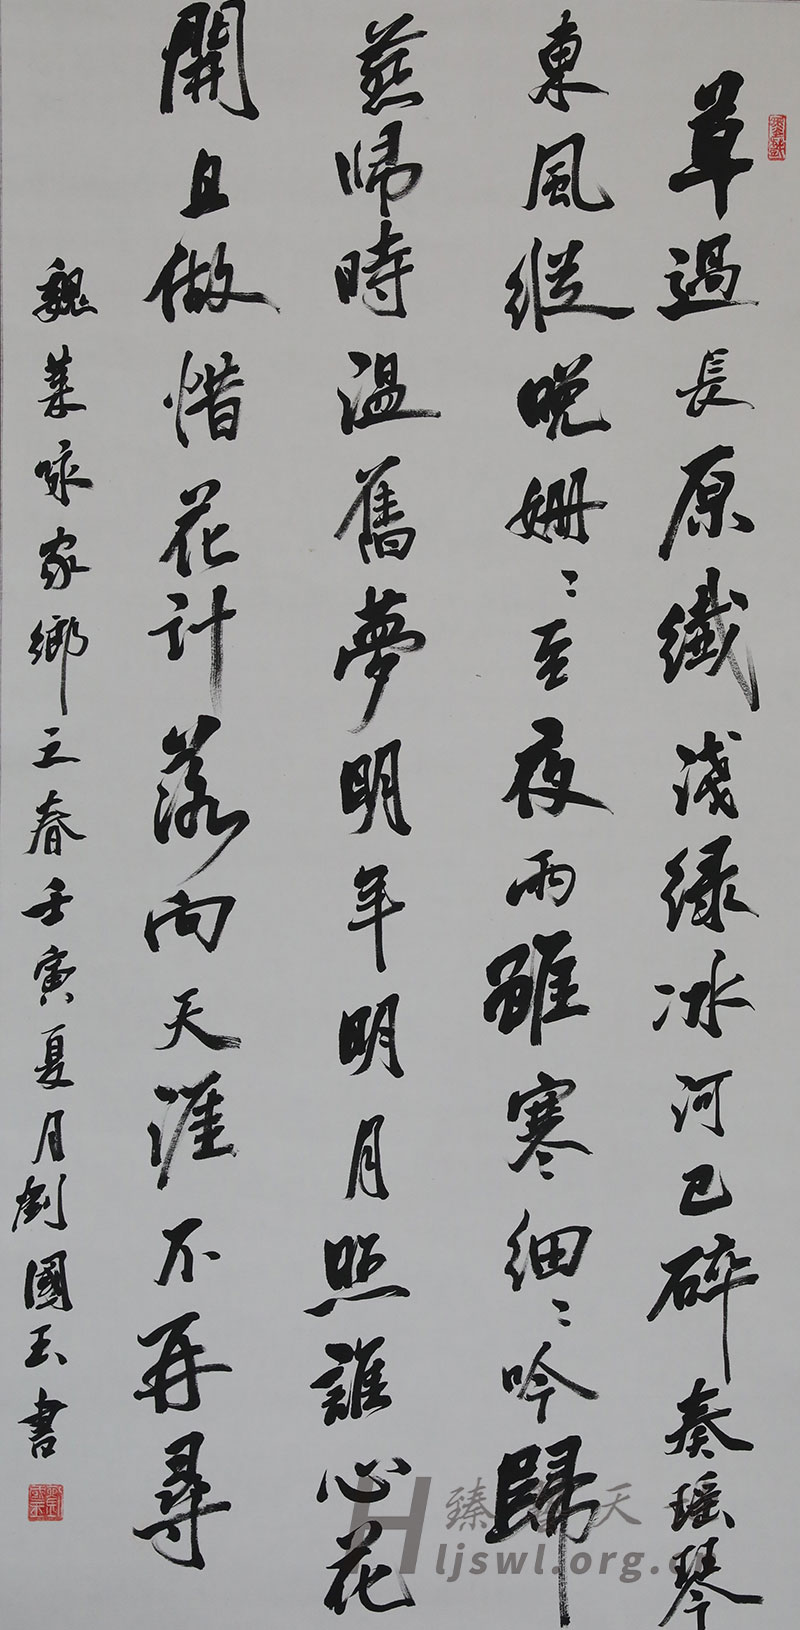 草過長原纖淺緑冰河已碎奏瑶琴
東風縱晚姍〻至夜雨雖寒細〻吟歸
燕歸時温舊夢明年明月照誰心花
開且做惜花計落向天涯不再尋
魏 咏家鄉之春壬寅夏月劉國玉書
臻 天
ljswl.org.c